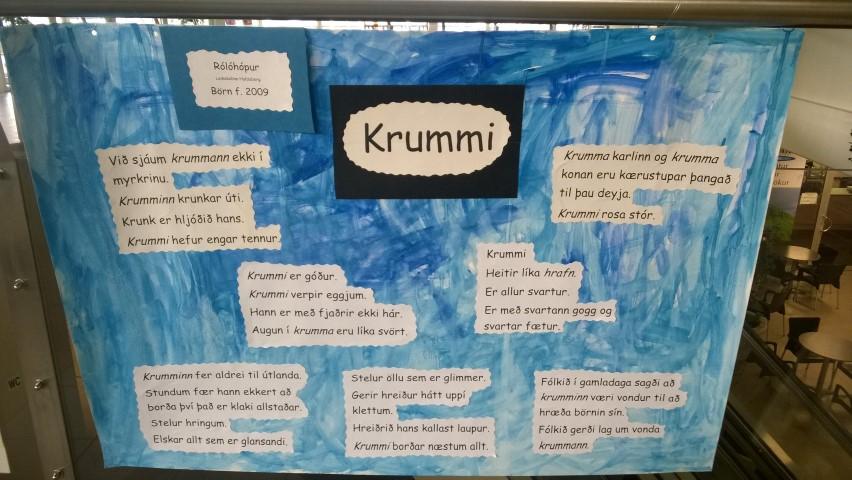 Rólóhópur
Börn f. 2009
Krummi
Við sjáum krummann ekki í
myrkrinu.
Krumminn krunkar úti.
Krunk er hljóðið hans.
Krummi hefur engar tennur.
Krumma karlinn og krumma
konan eru kærustupar þangað
til þau deyja.
Krummi rosa stór.
Krummi er góður.
Krummi verpir eggjum.
Hann er með fjaðrir ekki hár.
Augun í krumma eru líka svört.
Krummi
Heitir líka hrafn.
Er allur svartur.
Er með svartann gogg og
svartar fætur.
Krumminn fer aldrei til útlanda.
Stundum fær hann ekkert að
borða því það er klaki allstaðar.
Stelur hringum.
Elskar allt sem er glansandi.
Stelur öllu sem er glimmer.
Gerir hreiður hátt uppí
klettum.
Hreiðrið hans kallast laupur.
Krummi borðar næstum allt.
Fólkið í gamladaga sagði að
krumminn væri vondur til að
hræða börnin sín.
Fólkið gerði lag um vonda
krummann.
WC